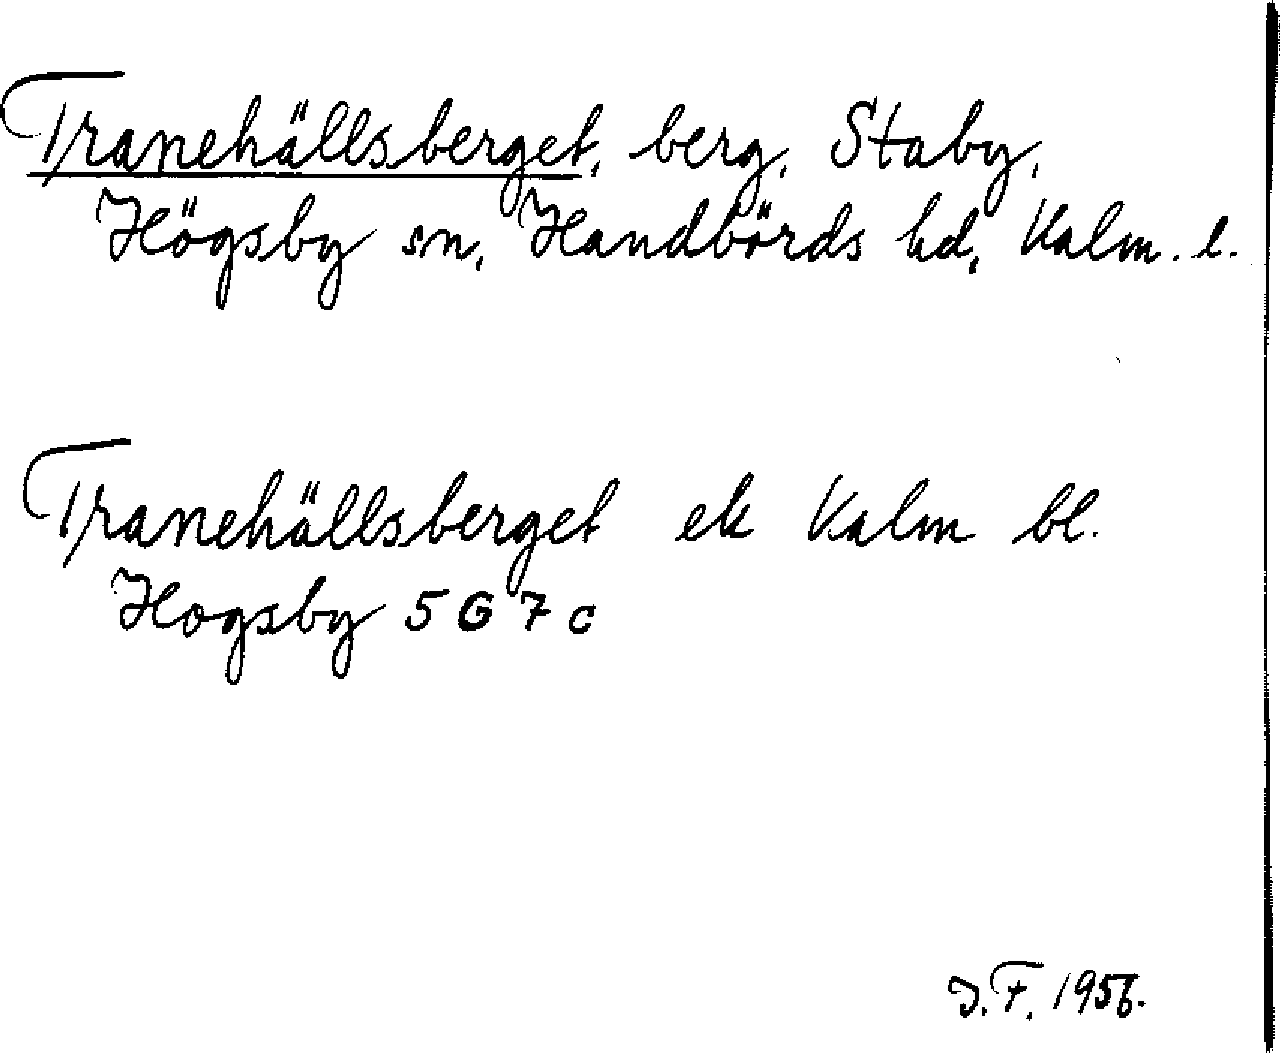 Tranehällsberget, berg, Staby,
Högsby sn, Handbörds hd, Kalm. l.
Tranehällsberget ek Kalm bl.
Hogsby 5 G 7 c
J. F. 1956.